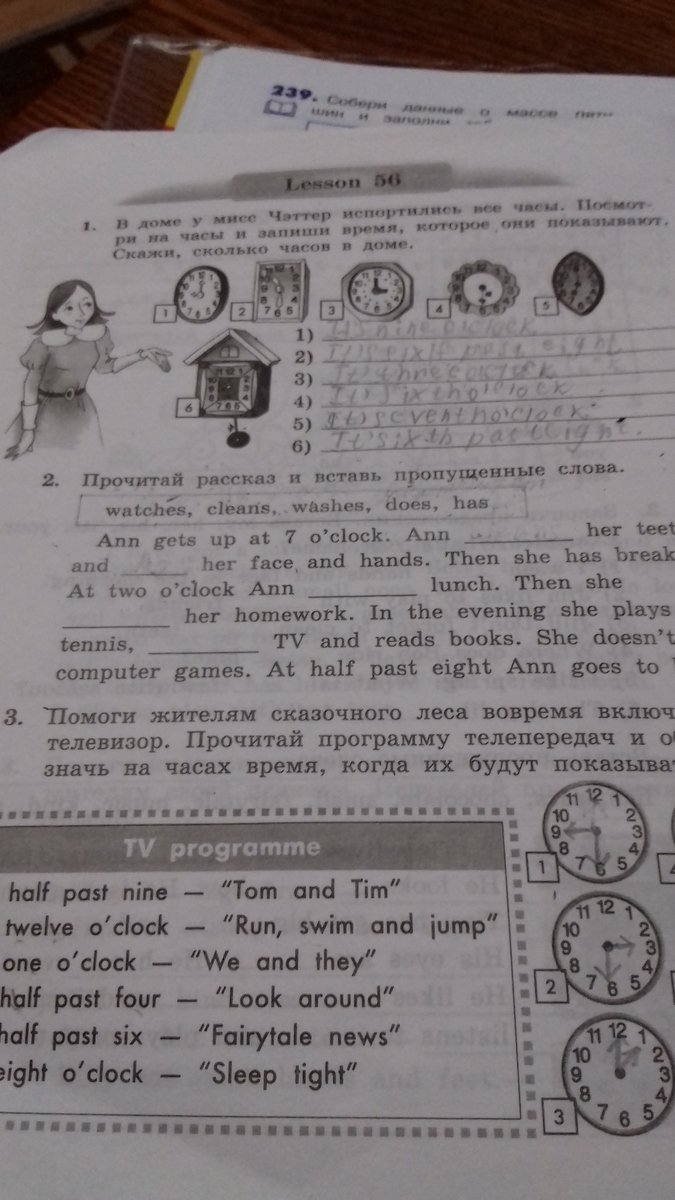 239. Собери данные о массе пяти
и заполни
Lesson 56
1. В доме у мисс Чэттер испортились все часы. Посмот-
ри на часы и запиши время, которое они показывают.
Скажи, сколько часов в доме.
1 2 3 4 5
1) It's nine o'clock
2) It's sixlf past eight
3) It's three o'clock
4) It's sixth o'clock
5) It's seventh o'clock.
6) It's sixth past eight.
6
2. Прочитай рассказ и вставь пропущенные слова.
watches, cleans, washes, does, has
Ann gets up at 7 o'clock. Ann her teet
and her face and hands. Then she has break
At two o'clock Ann lunch. Then she
her homework. In the evening she plays
tennis, TV and reads books. She doesn't
computer games. At half past eight Ann goes to
3. Помоги жителям сказочного леса вовремя включ
телевизор. Прочитай программу телепередач и о
значь на часах время, когда их будут показыва
TV programme
half past nine — "Tom and Tim"
twelve o'clock — "Run, swim and jump"
one o'clock — "We and they"
half past four — "Look around"
half past six — "Fairytale news"
eight o'clock — "Sleep tight"
12 1 2 3 4 5 6 7 8 9 10 11
1
12 1 2 3 4 5 6 7 8 9 10 11
2
12 1 2 3 4 5 6 7 8 9 10 11
3